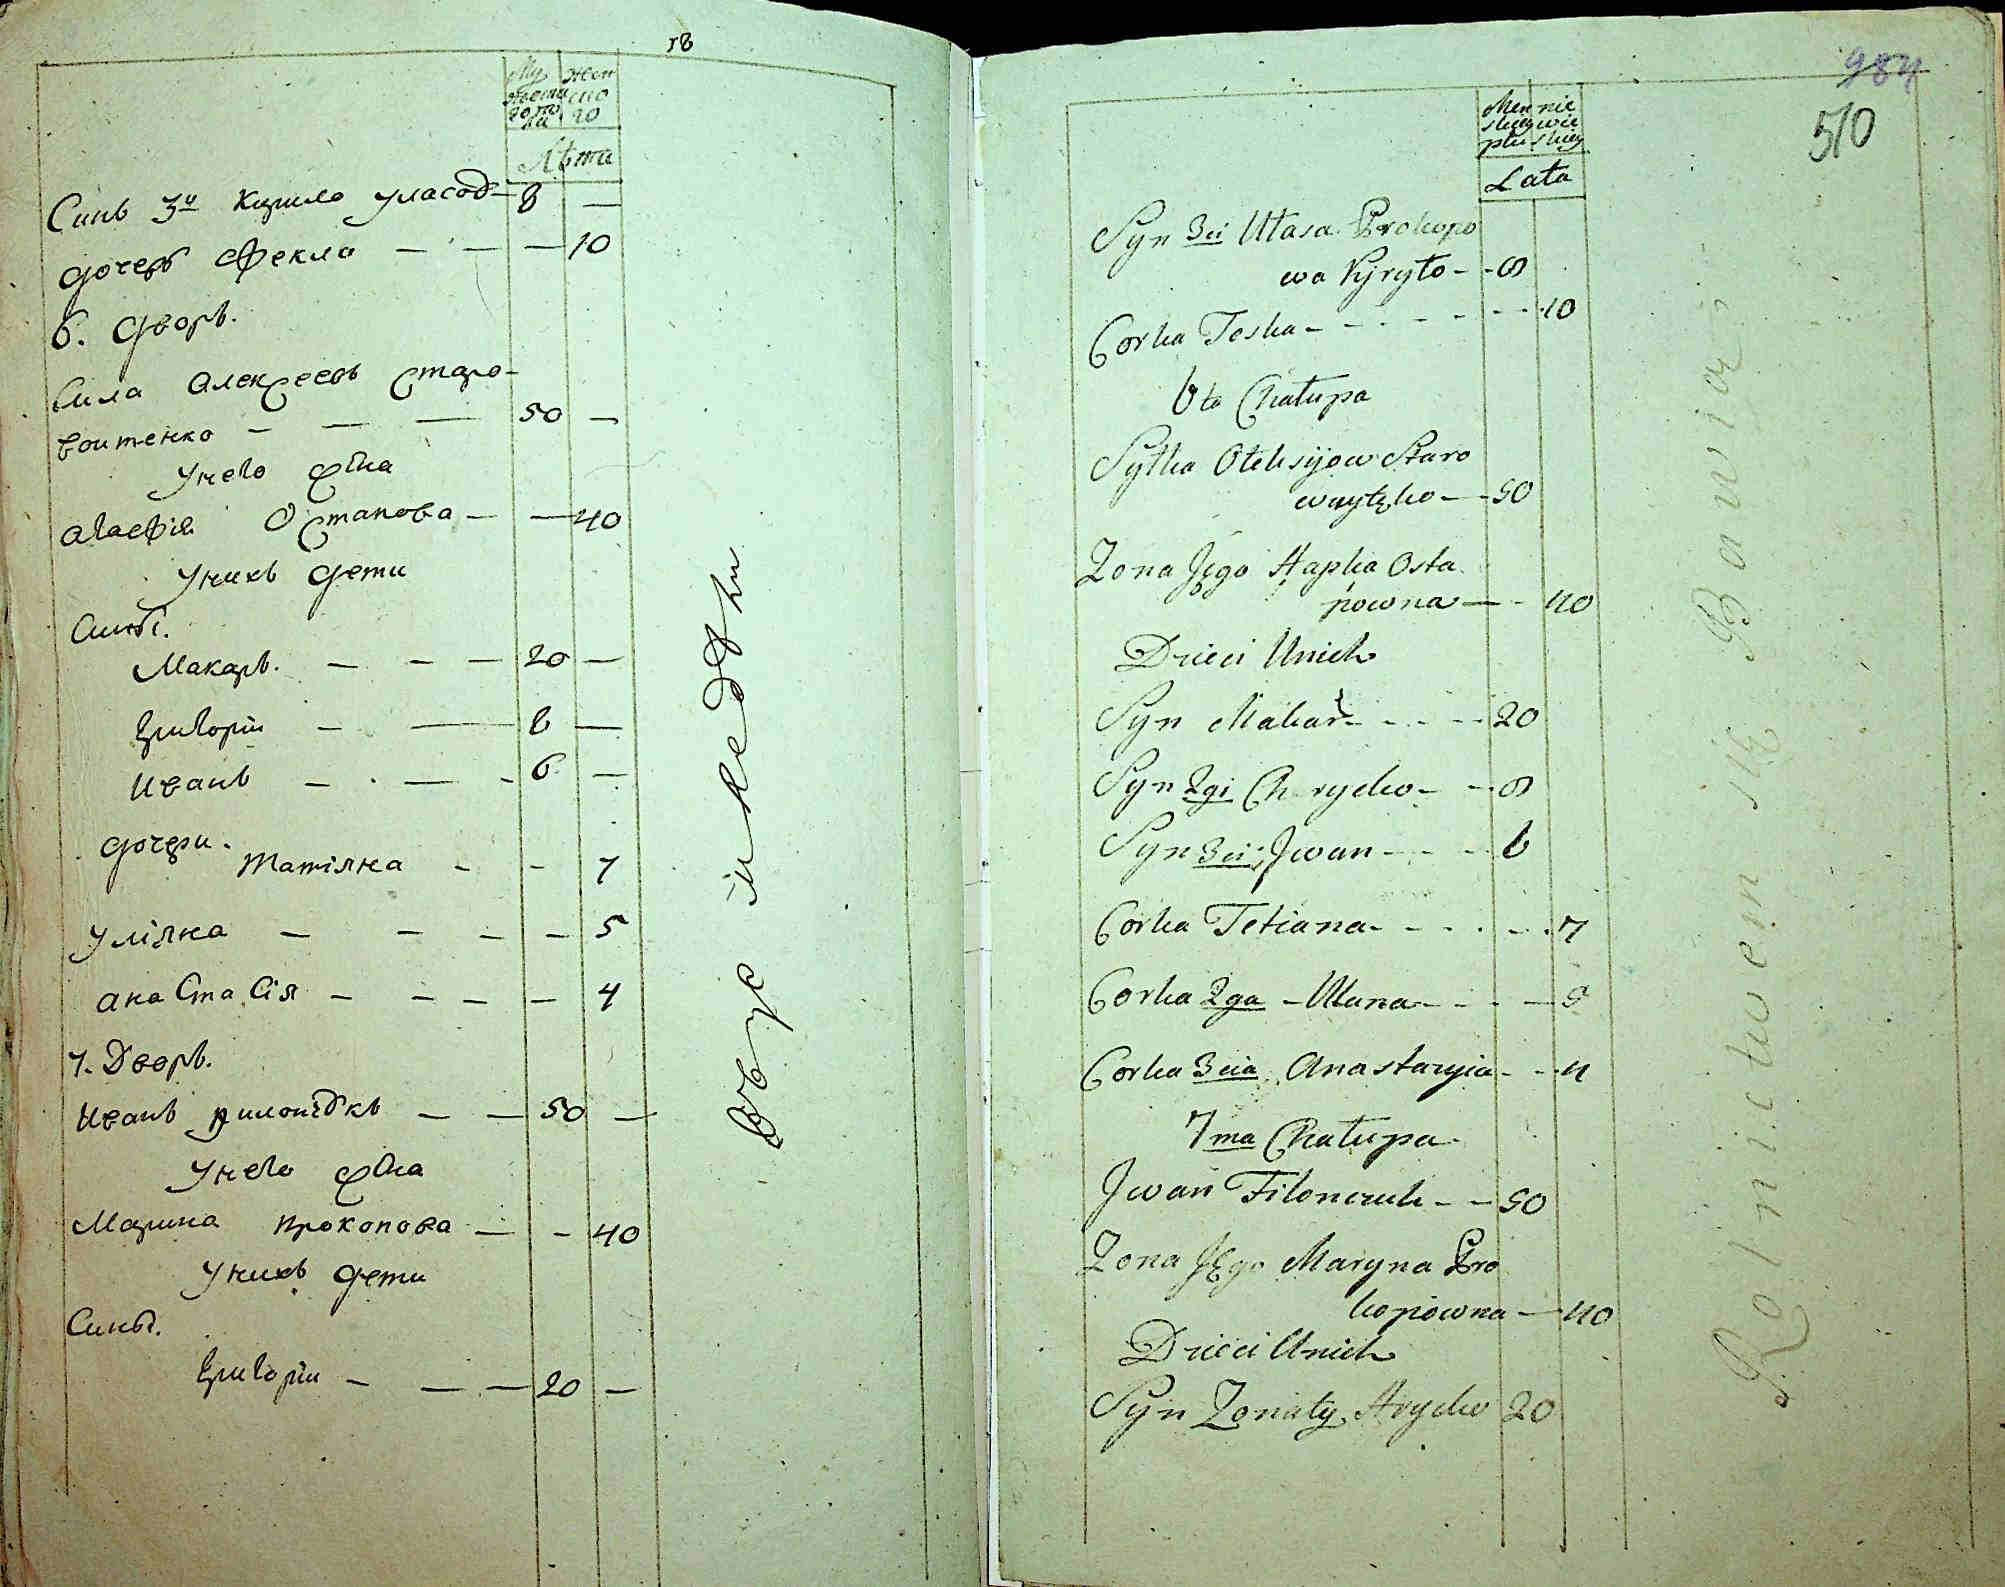 18
Му
жеска
го по
ла
Жен
ско
го
Лѣта
Синъ 3й Кирило Уласов 8 —
дочерь Фекла — — — 10
6. дворъ.
Сила Алексеевъ Старо-
воитенко — — — 50 —
Унего жена
Агафія Остапова — — 40
Унихъ дети
Сины.
Макаръ. — — — 20 —
Григории — — 8 —
Иванъ — — 6 —
дочери.
Татіяна — — 7
Уліяна — — — — 5
анастасія — — — — 4
7. Дворъ.
Иванъ Филончукъ — — 50 —
Унего жена
Марина Прокопова — — 40
Унихъ дети
Сины.
Григории — — — 20 —
984
510
Męz
skiey
płci
nie
wie
skiey
Lata
Syn 3ci Ułasa Prokopo
wa Kyryło - - 8
Corka Teska - - - - - - - 10
6ta Chałupa
Syłka Ołeksijow Staro
woytęko — - 50
Zona Jego Hapka Osta
powna — - 40
Dzieci Unich
Syn Makar - - - - 20
Syn 2gi Hrycko - - 8
Syn 3ci Jwan - - - 6
Corka Tetiana - - - - - - 7
Corka 2ga - Ulana - - - — 5
Corka 3cia Anastazyia - - 4
7ma Chałupa
Jwan Filonczuk - - 50
Zona Jego Maryna Pro
kopowna — 40
Dzieci Unich
Syn Zonaty Hrycko 20
Rolnictwem się Bawią